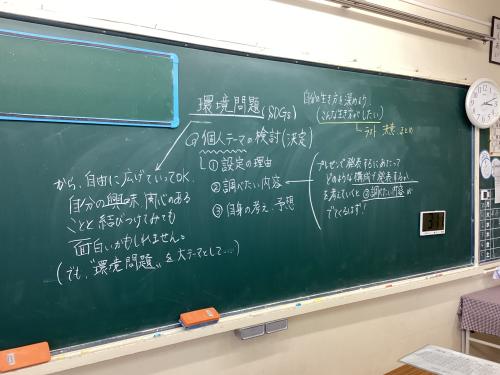 環境問題 (SDGs)
◎個人テーマの検討(決定)
①設定の理由
②調べたい内容
③自身の考え、予想
から、自由に広げていってOK.
自分の興味、関心のある
ことと結びつけてみても
面白いかもしれません。
(でも、"環境問題"を大テーマとして……)
自分の生き方を深めよう
(こんな生き方がしたい)
プレゼンで発表するにあたって
どのような構成で発表するか
を考えていくと②調べたい内容が
でてくるはず!